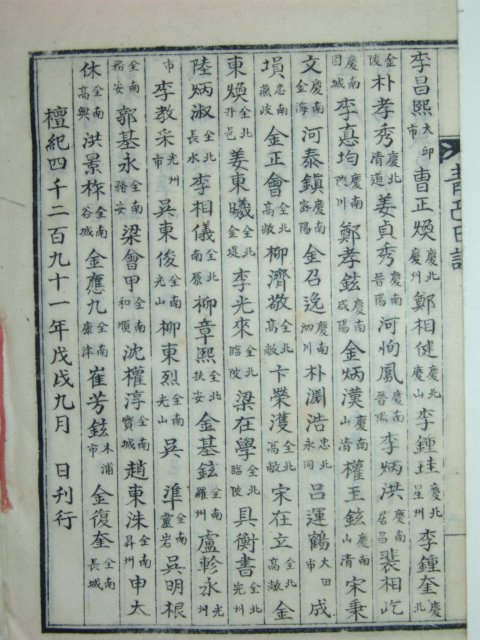 李昌熙 大邱市 曺正煥 慶北慶州 鄭相健 慶北慶山 李鍾珪 慶北星州 李鍾奎 慶北
金陵 朴孝秀 慶北清道 姜貞秀 慶南晋陽 河怕鳳 慶南晋陽 李炳洪 慶南居昌 裴相屹 慶南
固城 李悳均 慶南陜川 鄭孝鉉 慶南咸陽 金炳漢 慶南山清 權玉鉉 慶南山清 宋秉
文 慶南金海 河泰鎭 慶南晋陽 金召逸 慶南泗川 朴淵浩 忠北永同 呂運鶴 大田市 成
塤 忠南燕岐 金正會 全北高敞 柳濟敬 全北高敞 卞榮濩 全北高敞 宋在立 全北高敞 金
東煥 全北井邑 姜東曦 全北金堤 李光來 全北臨陂 梁在學 全北臨陂 具衡書 全北完州
陸炳淑 全北長水 李相儀 全北南原 柳章熙 全北扶安 金基鉉 全南羅州 盧軫永 全南光州
市 李教采 光州市 吳東俊 全南光山 柳東烈 全南光山 吳準 全南靈岩 吳明根
全南務安 郭基永 全南務安 梁會甲 全南和順 沈權淳 全南寶城 趙東洙 全南昇州 申太
休 全南高興 洪景杵 全南谷城 金應九 全南康津 崔芳鉉 木浦市 金復奎 全南長城
檀紀四千二百九十一年戊戌九月 日刊行